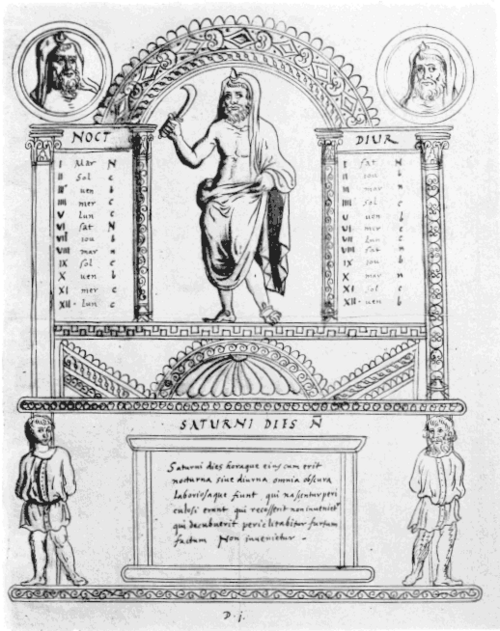 NOCT
I Mar N
II Sol c
III uen b
IIII mer c
V lun c
VI sat N
VII iou b
VIII mar n
IX sol c
X uen b
XI mer c
XII - lun c
DIUR
I sat N
II iou b
III mar n
IIII sol c
V uen b
VI mer c
VII lun c
VIII sat n
IX iou b
X mar n
XI sol c
XII - uen b
SATURNI DIES N
Saturni dies horaque eius cum erit
nocturna siue diurna omnia obscura
laboriosaque fiunt qui nascentur peri
culosi erunt qui recesserit non inueniet
qui decubuerit periclitabitur furtum
factum Non inuenietur -
D. j.